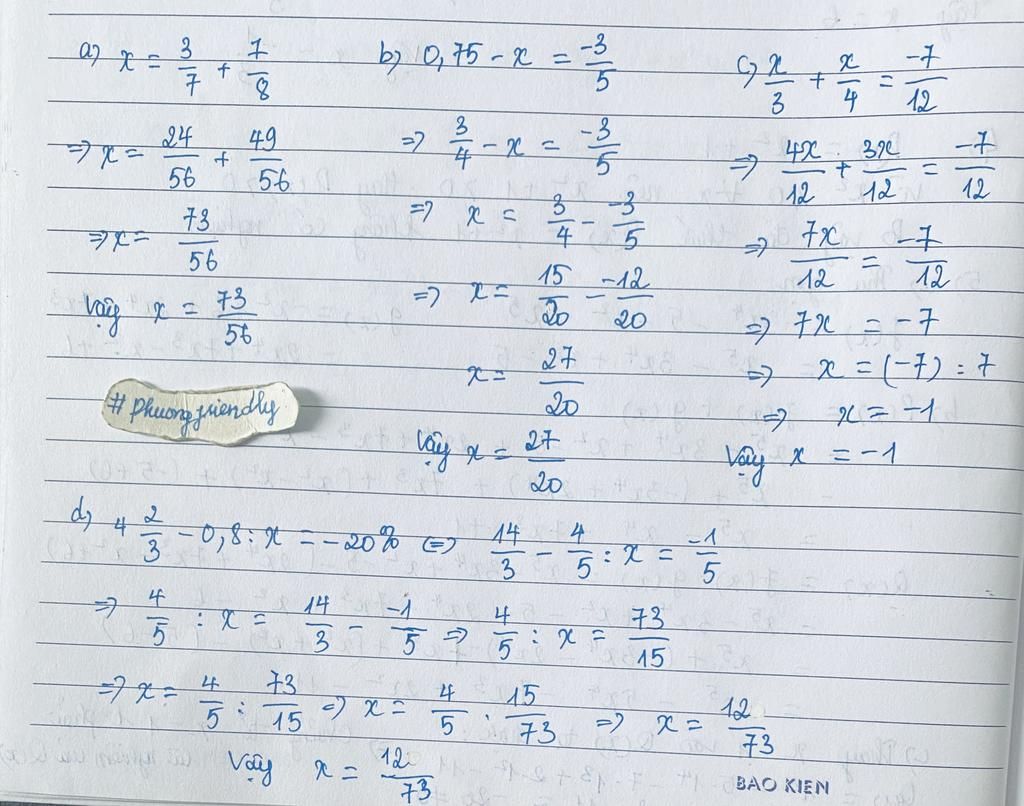 a) x = 3/7 + 7/8
=> x = 24/56 + 49/56
=> x = 73/56
Vậy x = 73/56
#phuongfriendly
b) 0,75 - x = -3/5
=> 3/4 - x = -3/5
=> x = 3/4 - -3/5
=> x = 15/20 - -12/20
x = 27/20
Vậy x = 27/20
c) x/3 + x/4 = -7/12
=> 4x/12 + 3x/12 = -7/12
=> 7x/12 = -7/12
=> 7x = -7
=> x = (-7) : 7
=> x = -1
Vậy x = -1
d) 4 2/3 - 0,8 : x = -20% <=> 14/3 - 4/5 : x = -1/5
=> 4/5 : x = 14/3 - -1/5 => 4/5 : x = 73/15
=> x = 4/5 : 73/15 => x = 4/5 . 15/73 => x = 12/73
Vậy x = 12/73
BAO KIEN